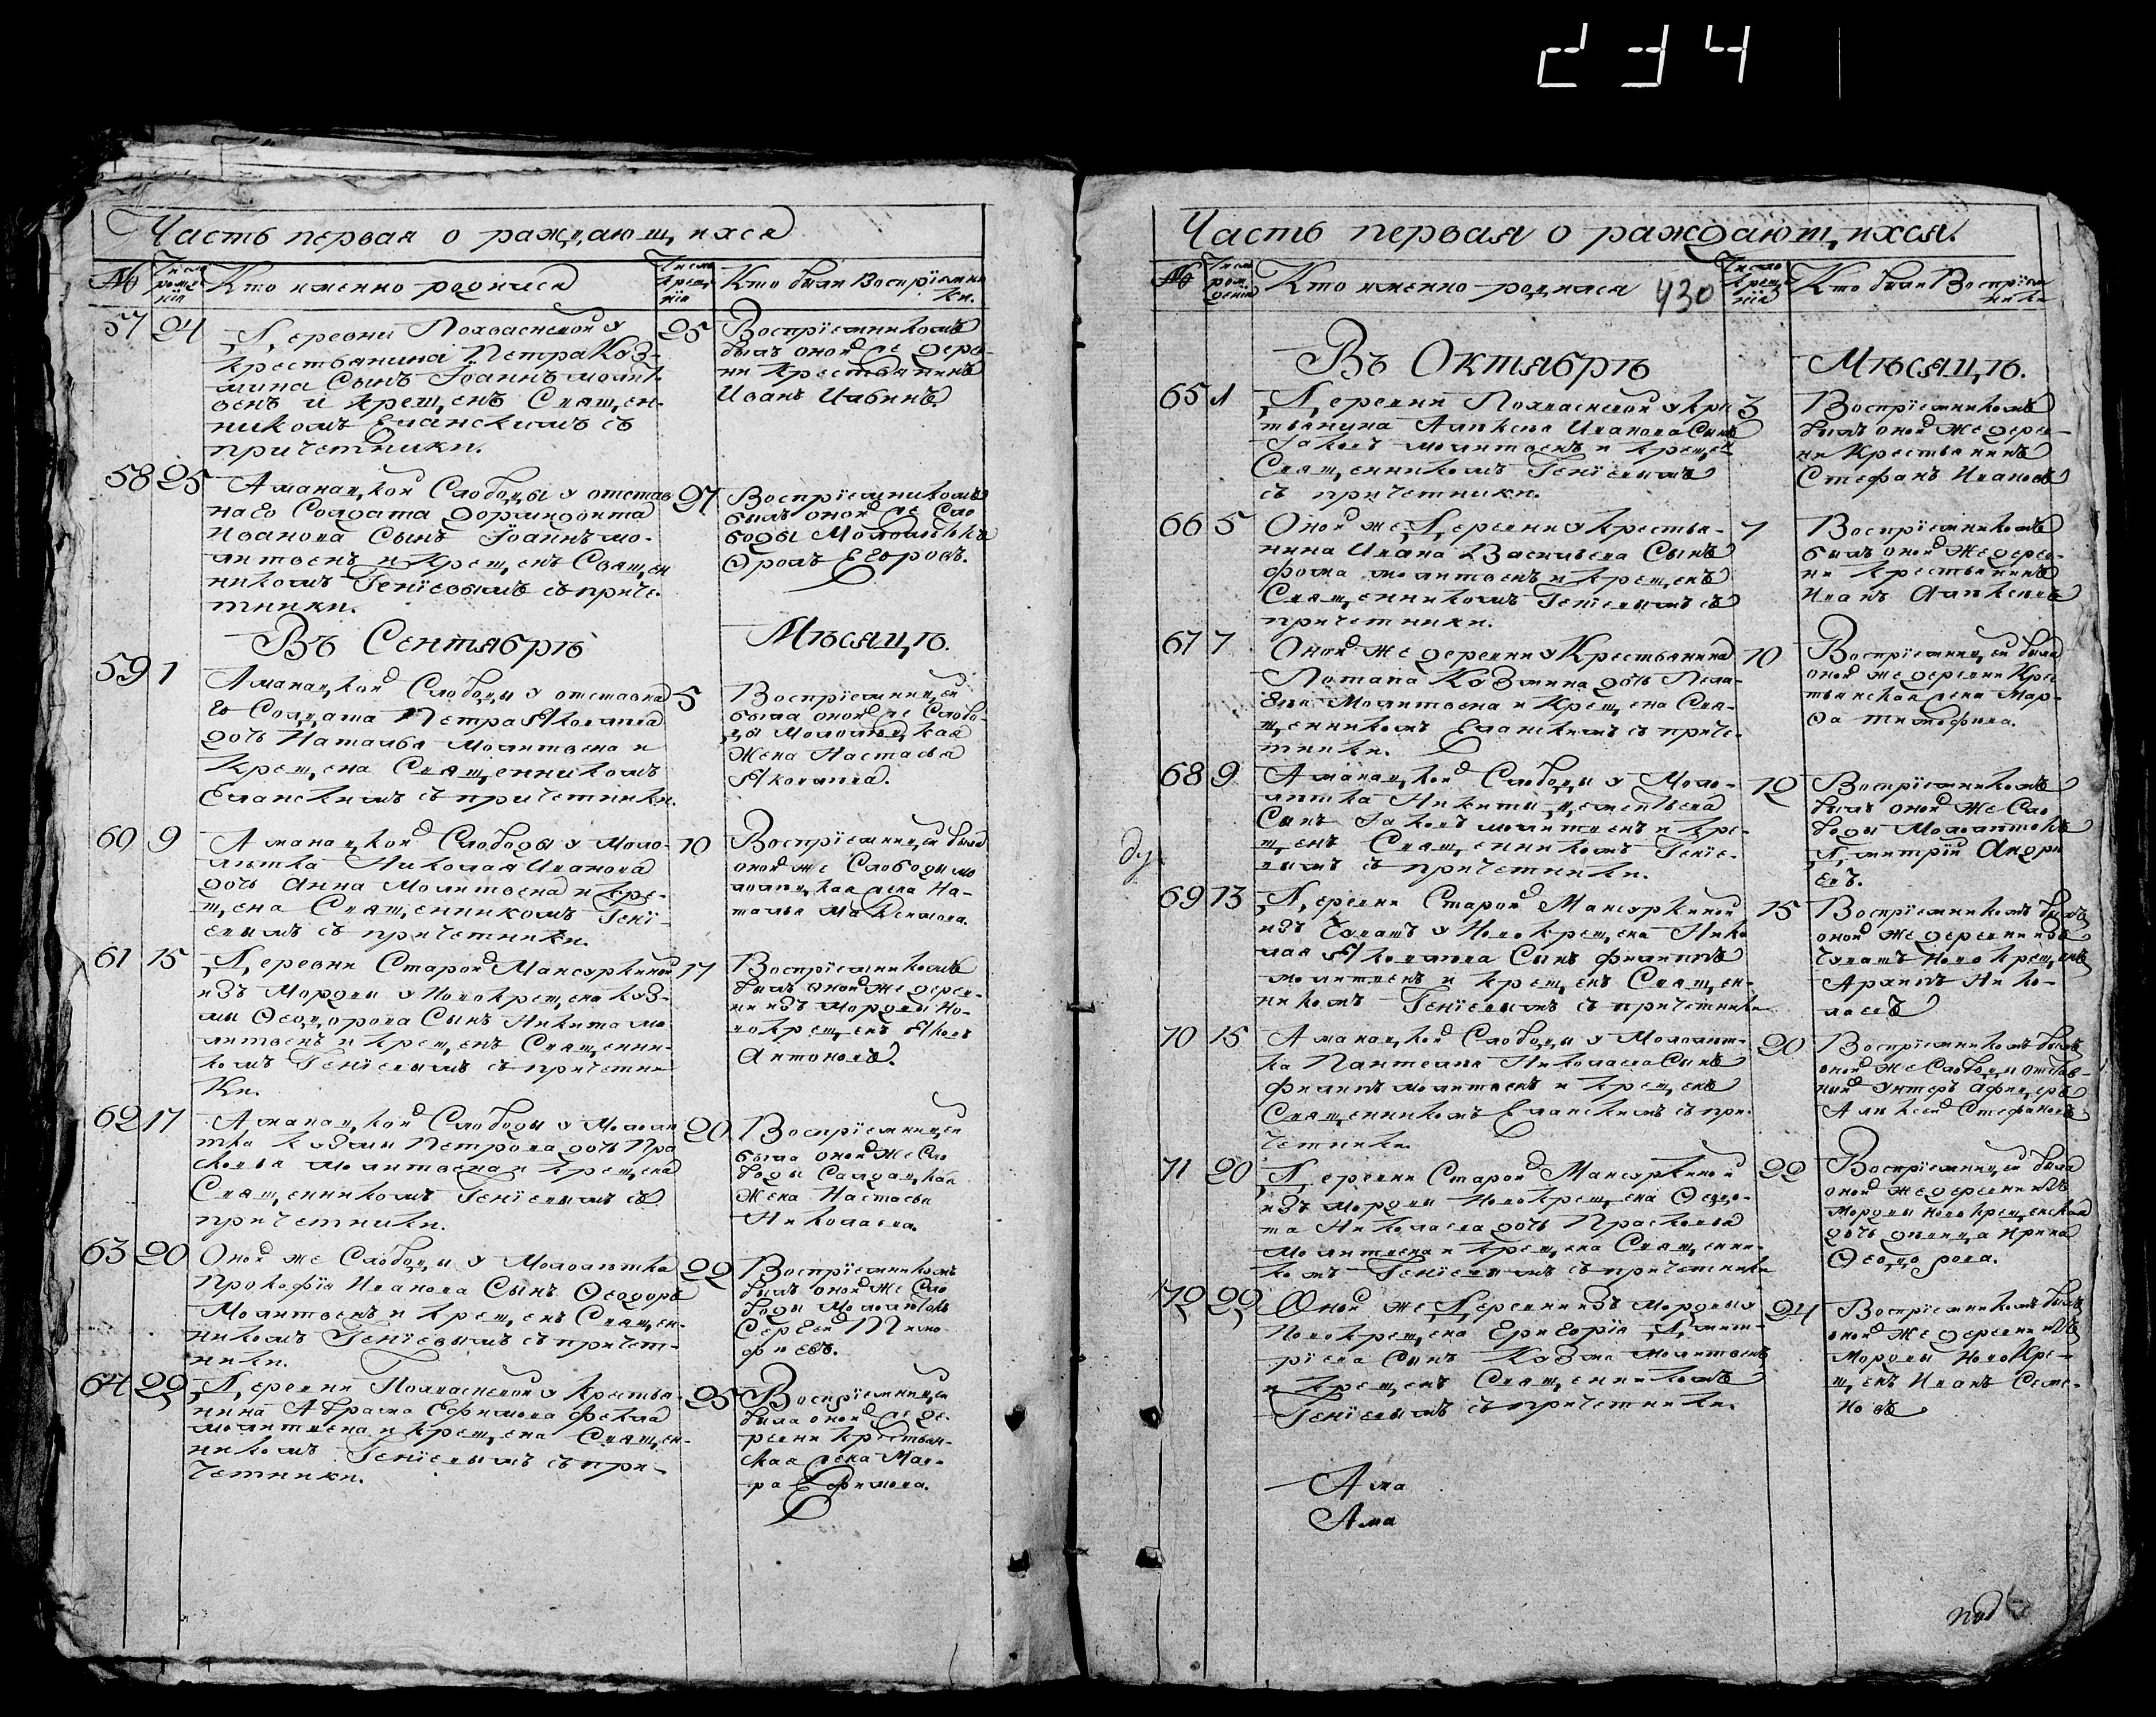 234
Часть первая о раждающихся
№
Число рожденія
Кто именно родился
Число крещенія
Кто были Воспріемники.
57 24
Деревни Похвасневой у
крестьянина Петра Коз-
мина Сынъ Іоаннъ молит-
венъ и крещенъ Священ-
никомъ Еланскимъ съ
причетники.
25
Воспріемникомъ
былъ оной же дерев-
ни крестьянинъ
Иванъ
58 25
Аманацкой Слободы у отстав
наго Солдата Дормидонта
Иванова Сынъ Іоаннъ мо-
литвенъ и крещенъ Священ
никомъ Генїевымъ съ приче-
тники.
27
Воспріемникомъ
былъ оной же Сло
боды
Ѳролъ Егоровъ.
Въ Сентябрѣ
Мѣсяцѣ.
59 1
Аманацкой Слободы у отставна
го Солдата Петра Яковлева
дочь Наталья Молитвена и
Крещена Священникомъ
Еланскимъ съ причетники.
5
Воспріемницей
была оной же Слобо-
ды Моло
Жена Настасья
Яковлева.
60 9
Аманацкой Слободы у Моло-
лѣтка Николая Иванова
дочь Анна Молитвена и кре-
щена Священникомъ Генї-
евымъ съ причетники.
10
Воспріемницей была
оной же Слободы мо
жена На-
талья Максимова.
61 15
Деревни Старой Мансуркиной
изъ Мордвы у Новокрещена Коз-
мы Ѳеодорова Сынъ Никита мо-
литвенъ и крещенъ Священни-
комъ Генїевымъ съ причетни
ки.
17
Воспріемникомъ
былъ оной же дерев-
ни изъ Мордвы Но-
вокрещенъ Яковъ
Антоновъ.
62 17
Аманацкой Слободы у Мололѣ
тка Козмы Петрова дочь Пра
сковья Молитвена и крещена
Священникомъ Генїевымъ съ
причетники.
20
Воспріемницей
была оной же Сло
боды Салдацкая
Жена Настасья
Николаева.
63 20
Оной же Слободы у Мололѣтка
Прокофія Иванова Сынъ Ѳеодоръ
Молитвенъ и крещенъ Священ-
никомъ Генїевымъ съ причет-
ники.
22
Воспріемникомъ
былъ оной же Сло
боды Мололѣтокъ
Сергѣй Тимо-
фѣевъ.
64 22
Деревни Похвасневой у крестья-
нина Абрама Ефимова Фекла
молитвена и крещена Священ-
никомъ Генїевымъ съ при-
четники.
25
Воспріемницей
была оной же де-
ревни крестьян-
ская жена Мав-
ра Ефимова.
Часть первая о раждающихся.
№
Число рожденія
Кто именно родился
430
Число крещенія
Кто были Воспріем
ники
Въ Октябрѣ
Мѣсяцѣ.
65 1
Деревни Похвасневой у крес
тьянина Алексея Иванова Сынъ
Іаковъ молитвенъ и крещенъ
Священникомъ Генїевымъ
съ причетники.
3
Воспріемникомъ
былъ оной же дерев-
ни Крестьянинъ
Стефанъ Ивановъ
66 5
Оной же Деревни у крестья-
нина Ивана Васильева Сынъ
Фома молитвенъ и крещенъ
Священникомъ Генїевымъ съ
причетники.
7
Воспріемникомъ
былъ оной же дерев-
ни крестьянинъ
Иванъ Алексеевъ
67 7
Оной же деревни у Крестьянина
Потапа Козмина дочь Пела-
гея Молитвена и Крещена Свя-
щенникомъ Еланскимъ съ приче-
тники.
10
Воспріемницей была
оной же деревни Крес
тьянская жена Мар-
ѳа Тимофѣева.
68 9
Аманацкой Слободы у Моло-
лѣтка Никиты Дементьева
Сынъ Іаковъ молитвенъ и кре-
щенъ Священникомъ Генїе-
вымъ съ причетники.
12
Воспріемникомъ
былъ оной же Сло
боды Мололѣтокъ
Дмитрій Андре
евъ.
69 13
Деревни Старой Мансуркиной
изъ Чувашъ у Новокрещена Нико
лая Яковлева Сынъ Филиппъ
молитвенъ и крещенъ Священ-
никомъ Генїевымъ съ причетники
15
Воспріемникомъ былъ
оной же деревни изъ
Чувашъ Новокрещенъ
Архипъ Нико-
лаевъ
70 15
Аманацкой Слободы у Мололѣт-
ка Пантелея Николаева Сынъ
Филиппъ молитвенъ и крещенъ
Священникомъ Еланскимъ съ при-
четники.
20
Воспріемникомъ былъ
оной же Слободы отстав-
ный Унтеръ афицеръ
Алексей Стефановъ
71 20
Деревни Старой Мансуркиной
изъ мордвы Новокрещена Ѳедо-
та Николаева дочь Прасковья
Молитвена и крещена Священни-
комъ Генїевымъ съ причетники
22
Воспріемницей была
оной же деревни изъ
Мордвы новокрещенская
дочь девица Ирина
Ѳеодорова.
72 22
Оной же Деревни изъ Мордвы у
Новокрещена Григорія Дмит-
ріева Сынъ Козма Молитвенъ
и крещенъ Священникомъ
Генїевымъ съ причетники.
24
Воспріемникомъ былъ
оной же деревни изъ
Мордвы Новокре-
щенъ Иванъ Семе-
новъ
Ама
Ама